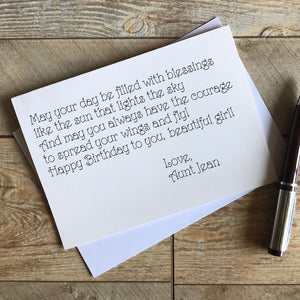 May your day be filled with blessings
like the sun that lights the sky
And may you always have the courage
to spread your wings and fly!
Happy Birthday to you, beautiful girl!
Love,
Aunt Jean